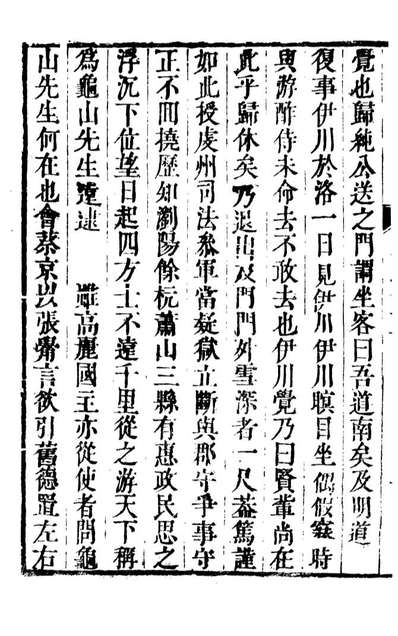 覺也歸純公送之門謂坐客曰吾道南矣及明道
復事伊川於洛一日見伊川伊川瞑目坐偶假寐時
與游酢侍未命去不敢去也伊川覺乃曰賢輩尚在
此乎歸休矣乃退出及門門外雪深者一尺葢篤謹
如此授虔州司法叅軍當疑獄立斷與郡守爭事守
正不回撓歷知瀏陽餘杭蕭山三縣有惠政民思之
浮沉下位望日起四方士不遠千里從之游天下稱
爲龜山先生遠逮 雖高麗國王亦從使者問龜
山先生何在也會蔡京以張觷言欲引舊德置左右